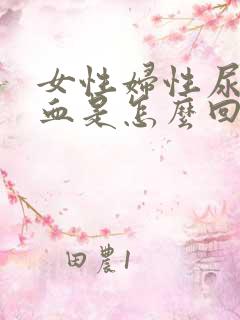 女性婦性尿
血是怎麼回
田農1